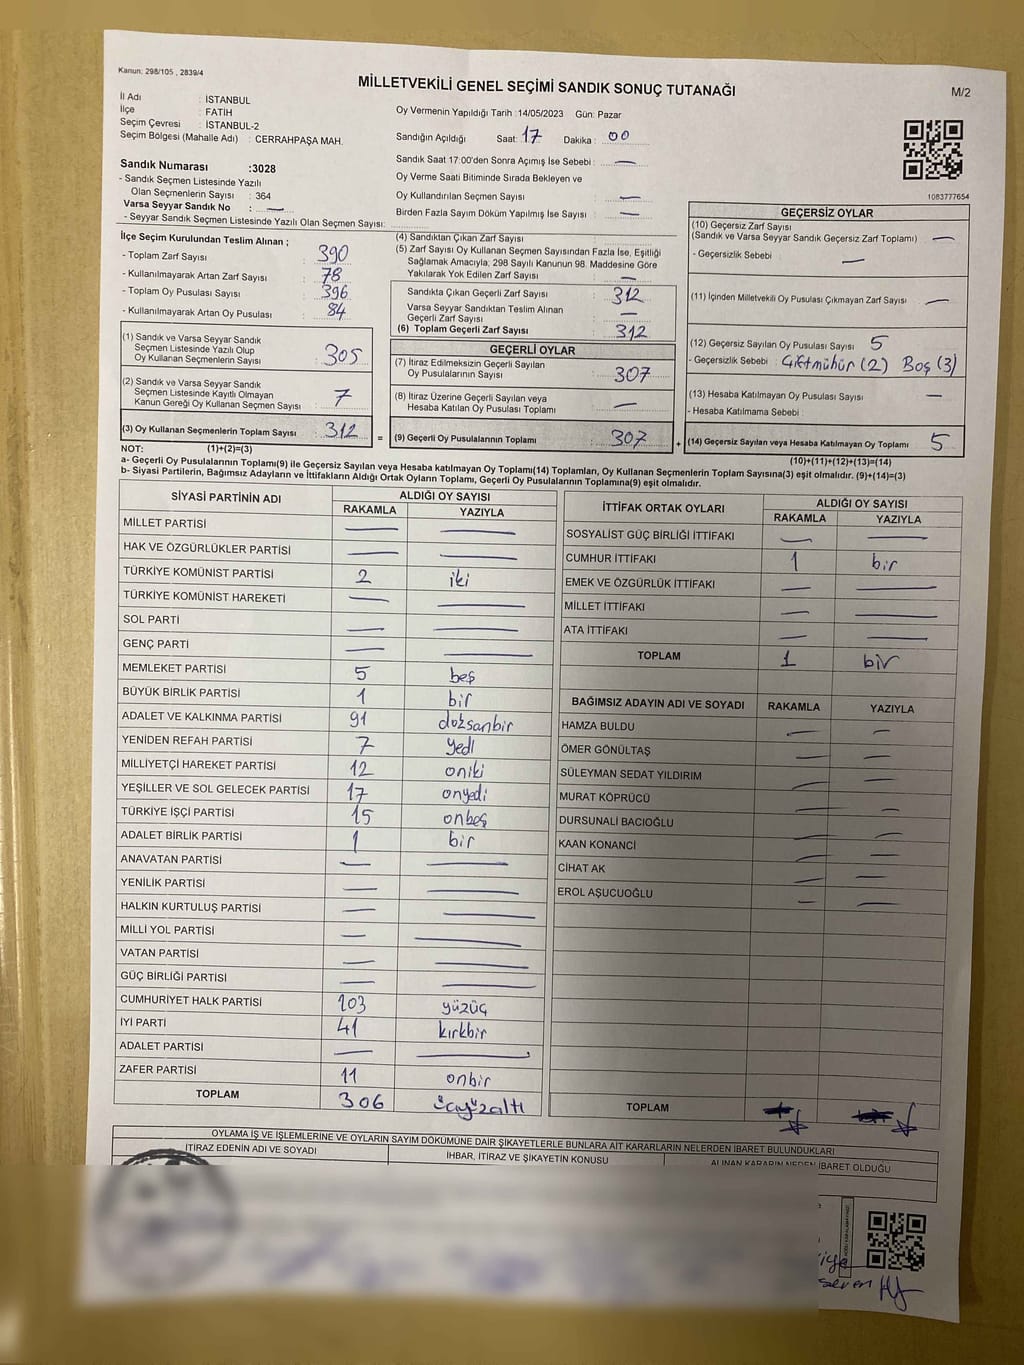 Kanun: 298/105 , 2839/4
MİLLETVEKİLİ GENEL SEÇİMİ SANDIK SONUÇ TUTANAĞI
M/2
İl Adı : İSTANBUL
İlçe : FATİH
Seçim Çevresi : İSTANBUL-2
Seçim Bölgesi (Mahalle Adı) : CERRAHPAŞA MAH.
Oy Vermenin Yapıldığı Tarih :14/05/2023 Gün: Pazar
Sandığın Açıldığı Saat: 17 Dakika : 00
Sandık Saat 17:00'den Sonra Açımış İse Sebebi : —
Oy Verme Saati Bitiminde Sırada Bekleyen ve
Oy Kullandırılan Seçmen Sayısı —
Birden Fazla Sayım Döküm Yapılmış İse Sayısı : —
1083777654
Sandık Numarası :3028
- Sandık Seçmen Listesinde Yazılı
Olan Seçmenlerin Sayısı : 364
Varsa Seyyar Sandık No : —
- Seyyar Sandık Seçmen Listesinde Yazılı Olan Seçmen Sayısı:
İlçe Seçim Kurulundan Teslim Alınan ;
- Toplam Zarf Sayısı : 390
- Kullanılmayarak Artan Zarf Sayısı : 78
- Toplam Oy Pusulası Sayısı : 396
- Kullanılmayarak Artan Oy Pusulası : 84
(1) Sandık ve Varsa Seyyar Sandık
Seçmen Listesinde Yazılı Olup
Oy Kullanan Seçmenlerin Sayısı : 305
(2) Sandık ve Varsa Seyyar Sandık
Seçmen Listesinde Kayıtlı Olmayan
Kanun Gereği Oy Kullanan Seçmen Sayısı : 7
(3) Oy Kullanan Seçmenlerin Toplam Sayısı : 312
(4) Sandıktan Çıkan Zarf Sayısı :
(5) Zarf Sayısı Oy Kullanan Seçmen Sayısından Fazla İse, Eşitliği
Sağlamak Amacıyla; 298 Sayılı Kanunun 98. Maddesine Göre
Yakılarak Yok Edilen Zarf Sayısı : —
Sandıkta Çıkan Geçerli Zarf Sayısı : 312
Varsa Seyyar Sandıktan Teslim Alınan
Geçerli Zarf Sayısı : —
(6) Toplam Geçerli Zarf Sayısı : 312
GEÇERLİ OYLAR
(7) İtiraz Edilmeksizin Geçerli Sayılan
Oy Pusulalarının Sayısı : 307
(8) İtiraz Üzerine Geçerli Sayılan veya
Hesaba Katılan Oy Pusulası Toplamı : —
= (9) Geçerli Oy Pusulalarının Toplamı : 307 +
GEÇERSİZ OYLAR
(10) Geçersiz Zarf Sayısı
(Sandık ve Varsa Seyyar Sandık Geçersiz Zarf Toplamı) —
- Geçersizlik Sebebi : —
(11) İçinden Milletvekili Oy Pusulası Çıkmayan Zarf Sayısı : —
(12) Geçersiz Sayılan Oy Pusulası Sayısı : 5
- Geçersizlik Sebebi : Çiftmühür (2) Boş (3)
(13) Hesaba Katılmayan Oy Pusulası Sayısı : —
- Hesaba Katılmama Sebebi :
(14) Geçersiz Sayılan veya Hesaba Katılmayan Oy Toplamı : 5
NOT: (1)+(2)=(3)
(10)+(11)+(12)+(13)=(14)
a- Geçerli Oy Pusulalarının Toplamı(9) ile Geçersiz Sayılan veya Hesaba katılmayan Oy Toplamı(14) Toplamları, Oy Kullanan Seçmenlerin Toplam Sayısına(3) eşit olmalıdır. (9)+(14)=(3)
b- Siyasi Partilerin, Bağımsız Adayların ve İttifakların Aldığı Ortak Oyların Toplamı, Geçerli Oy Pusulalarının Toplamına(9) eşit olmalıdır.
SİYASİ PARTİNİN ADI ALDIĞI OY SAYISI
RAKAMLA YAZIYLA
MİLLET PARTİSİ — —
HAK VE ÖZGÜRLÜKLER PARTİSİ — —
TÜRKİYE KOMÜNİST PARTİSİ 2 iki
TÜRKİYE KOMÜNİST HAREKETİ — —
SOL PARTİ — —
GENÇ PARTİ — —
MEMLEKET PARTİSİ 5 beş
BÜYÜK BİRLİK PARTİSİ 1 bir
ADALET VE KALKINMA PARTİSİ 91 doksanbir
YENİDEN REFAH PARTİSİ 7 yedi
MİLLİYETÇİ HAREKET PARTİSİ 12 oniki
YEŞİLLER VE SOL GELECEK PARTİSİ 17 onyedi
TÜRKİYE İŞÇİ PARTİSİ 15 onbeş
ADALET BİRLİK PARTİSİ 1 bir
ANAVATAN PARTİSİ — —
YENİLİK PARTİSİ — —
HALKIN KURTULUŞ PARTİSİ — —
MİLLİ YOL PARTİSİ — —
VATAN PARTİSİ — —
GÜÇ BİRLİĞİ PARTİSİ — —
CUMHURİYET HALK PARTİSİ 103 yüzüç
İYİ PARTİ 41 kırkbir
ADALET PARTİSİ — —
ZAFER PARTİSİ 11 onbir
TOPLAM 306 üçyüzaltı
İTTİFAK ORTAK OYLARI ALDIĞI OY SAYISI
RAKAMLA YAZIYLA
SOSYALİST GÜÇ BİRLİĞİ İTTİFAKI — —
CUMHUR İTTİFAKI 1 bir
EMEK VE ÖZGÜRLÜK İTTİFAKI — —
MİLLET İTTİFAKI — —
ATA İTTİFAKI — —
TOPLAM 1 bir
BAĞIMSIZ ADAYIN ADI VE SOYADI RAKAMLA YAZIYLA
HAMZA BULDU — —
ÖMER GÖNÜLTAŞ — —
SÜLEYMAN SEDAT YILDIRIM — —
MURAT KÖPRÜCÜ — —
DURSUNALİ BACIOĞLU — —
KAAN KONANCİ — —
CİHAT AK — —
EROL AŞUCUOĞLU — —
TOPLAM
OYLAMA İŞ VE İŞLEMLERİNE VE OYLARIN SAYIM DÖKÜMÜNE DAİR ŞİKAYETLERLE BUNLARA AİT KARARLARIN NELERDEN İBARET BULUNDUKLARI
İTİRAZ EDENİN ADI VE SOYADI İHBAR, İTİRAZ VE ŞİKAYETİN KONUSU ALINAN KARARIN NEDEN İBARET OLDUĞU